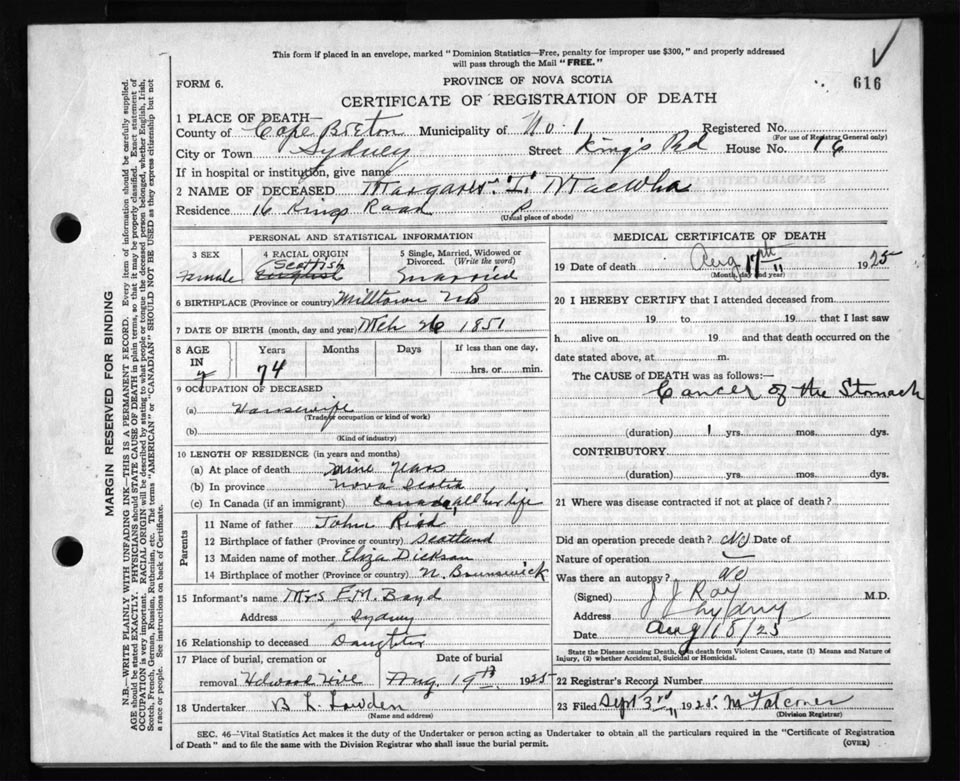 This form if placed in an envelope, marked "Dominion Statistics—Free, penalty for improper use $300," and properly addressed
will pass through the Mail "FREE."
FORM 6.
PROVINCE OF NOVA SCOTIA
616
CERTIFICATE OF REGISTRATION OF DEATH
1 PLACE OF DEATH—
County of Cape Breton Municipality of No. 1 Registered No.
(For use of Registrar General only)
City or Town Sydney Street King's Rd House No. 16
If in hospital or institution, give name
2 NAME OF DECEASED Margaret "I" MacWha
Residence 16 Kings Road
(Usual place of abode)
PERSONAL AND STATISTICAL INFORMATION
3 SEX
Female
4 RACIAL ORIGIN
Scottish
5 Single, Married, Widowed or
Divorced. (Write the word)
Married
6 BIRTHPLACE (Province or country) Milltown NB
7 DATE OF BIRTH (month, day and year) Mch 26 1851
8 AGE
IN
Years
74
Months
Days
If less than one day,
hrs. or min.
9 OCCUPATION OF DECEASED
(a) Housewife
(Trade, occupation or kind of work)
(b)
(Kind of industry)
10 LENGTH OF RESIDENCE (in years and months)
(a) At place of death nine years
(b) In province Nova Scotia
(c) In Canada (if an immigrant) Canada, all her life
Parents
11 Name of father John
12 Birthplace of father (Province or country) Scotland
13 Maiden name of mother Eliza Dickson
14 Birthplace of mother (Province or country) N. Brunswick
15 Informant's name Mrs F.M. Boyd
Address Sydney
16 Relationship to deceased Daughter
17 Place of burial, cremation or
Date of burial
removal Hill Aug. 19th 1925
18 Undertaker B L. Lowden
(Name and address)
MEDICAL CERTIFICATE OF DEATH
19 Date of death Aug 17th 1925
(Month, day and year)
20 I HEREBY CERTIFY that I attended deceased from
19 to 19 that I last saw
h alive on 19 and that death occurred on the
date stated above, at m.
The CAUSE of DEATH was as follows:—
Cancer of the Stomach
(duration) 1 yrs. mos. dys.
CONTRIBUTORY
(duration) yrs. mos. dys.
21 Where was disease contracted if not at place of death?
Did an operation precede death? No Date of
Nature of operation
Was there an autopsy? No
(Signed) J J Roy M.D.
Address Sydney
Date Aug 18/25
State the Disease causing Death, or in death from Violent Causes, state (1) Means and Nature of
Injury, (2) whether Accidental, Suicidal or Homicidal.
22 Registrar's Record Number
23 Filed Sept 3rd 1925. M Falconer
(Division Registrar)
SEC. 46—Vital Statistics Act makes it the duty of the Undertaker or person acting as Undertaker to obtain all the particulars required in the "Certificate of Registration
of Death" and to file the same with the Division Registrar who shall issue the burial permit.
(OVER)
MARGIN RESERVED FOR BINDING
N.B.—WRITE PLAINLY WITH UNFADING INK—THIS IS A PERMANENT RECORD. Every item of information should be carefully supplied.
AGE should be stated EXACTLY. PHYSICIANS should STATE CAUSE OF DEATH in plain terms, so that it may be properly classified. Exact statement of
OCCUPATION is very important. RACIAL ORIGIN will be described by stating to what people or tongue the deceased person belonged, whether English, Irish,
Scotch, French, German, Russian, Ruthenian, etc. The terms "AMERICAN" or "CANADIAN" SHOULD NOT BE USED as they express citizenship but not
a race or people. See instructions on back of Certificate.